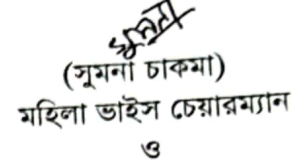 (সুমনা চাকমা)
মহিলা ভাইস চেয়ারম্যান
ও